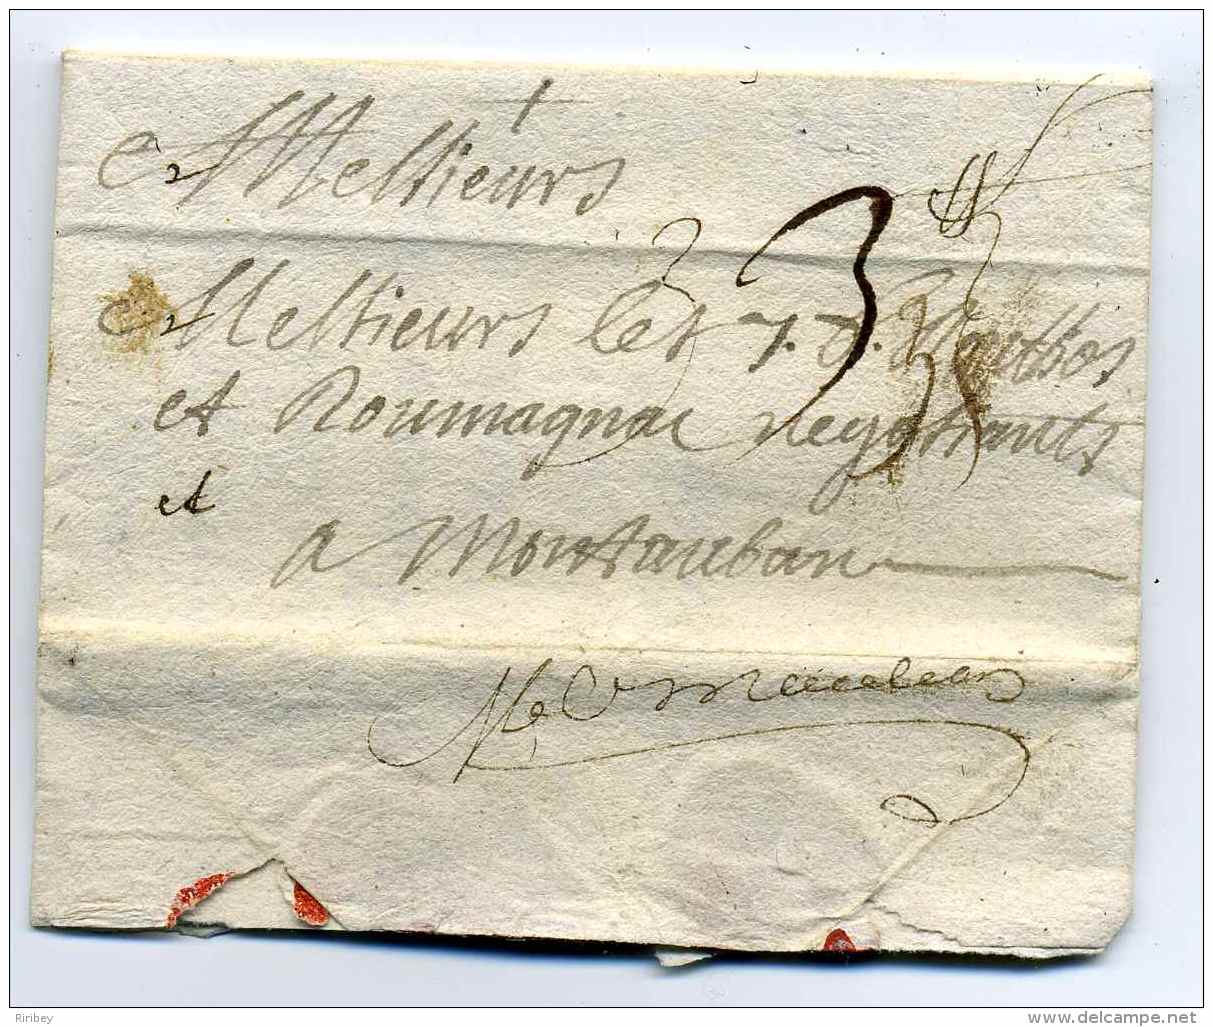 Messieurs
3
Messieurs les J. J.
et Roumagnac negotiants
et
a Montauban
Riribey
www.delcampe.net